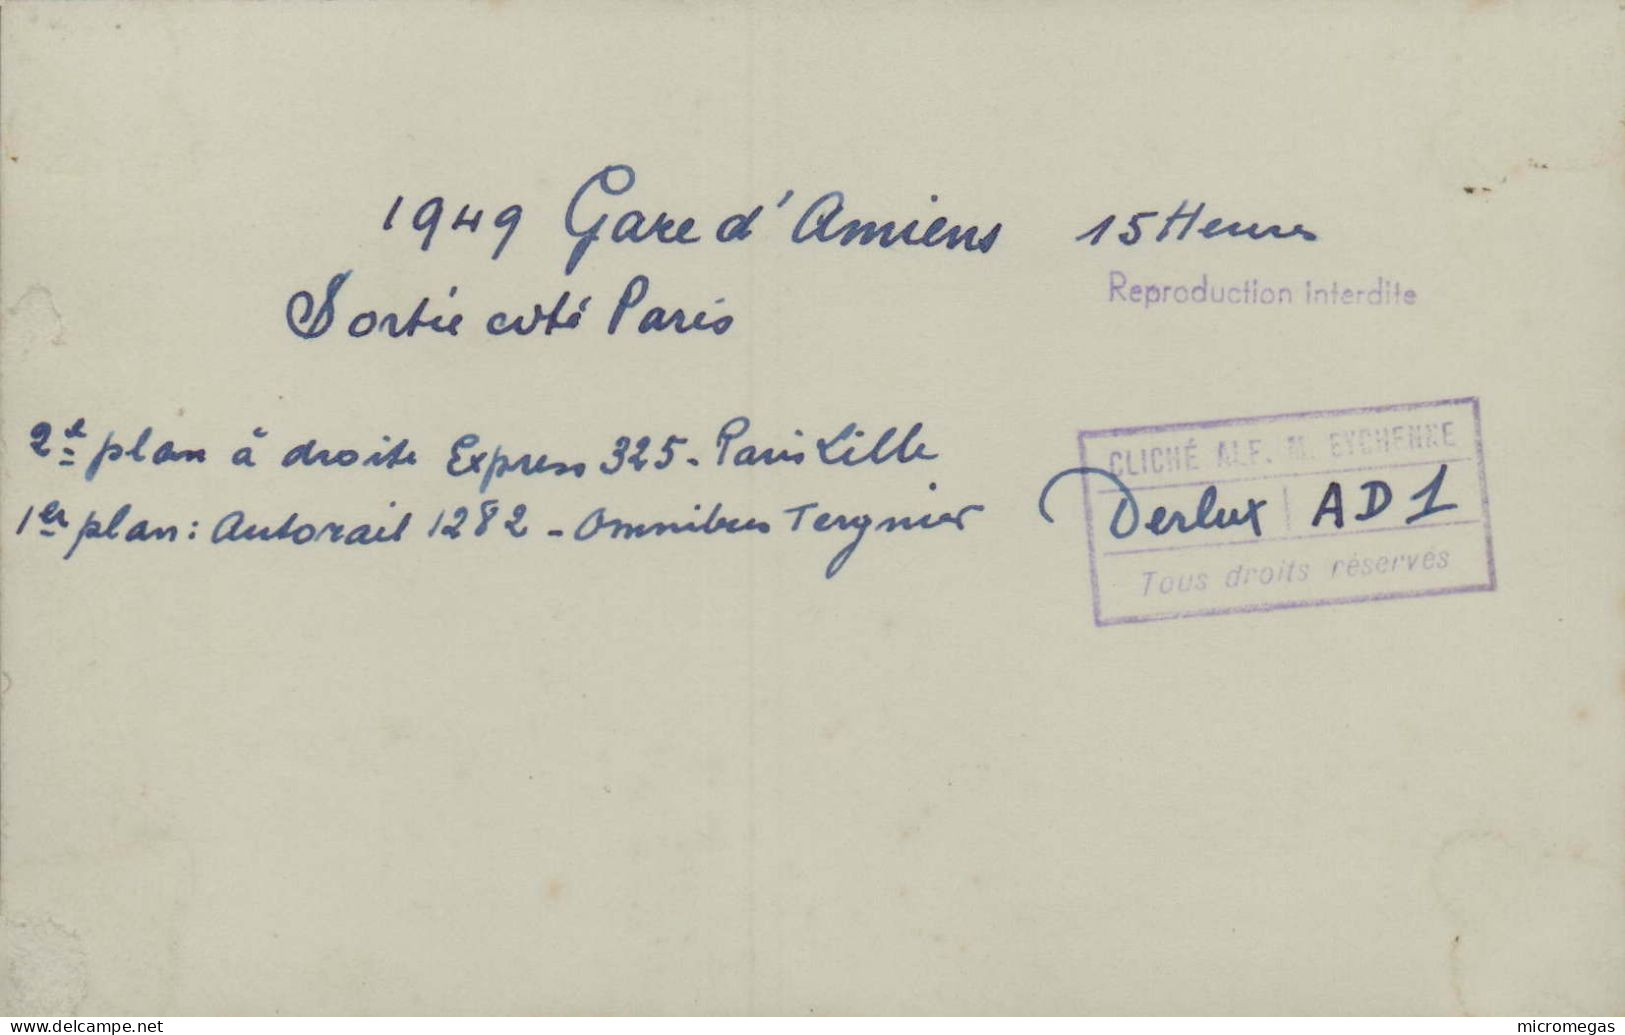 1949 Gare d'Amiens 15 Heures
Reproduction interdite
Sortie coté Paris
2e plan à droite Express 325 - Paris Lille
1er plan : Autorail 1282 - Omnibus Tergnier
CLICHÉ ALF. M. EYCHENNE
Derlux AD1
Tous droits réservés
www.delcampe.net
micromegas